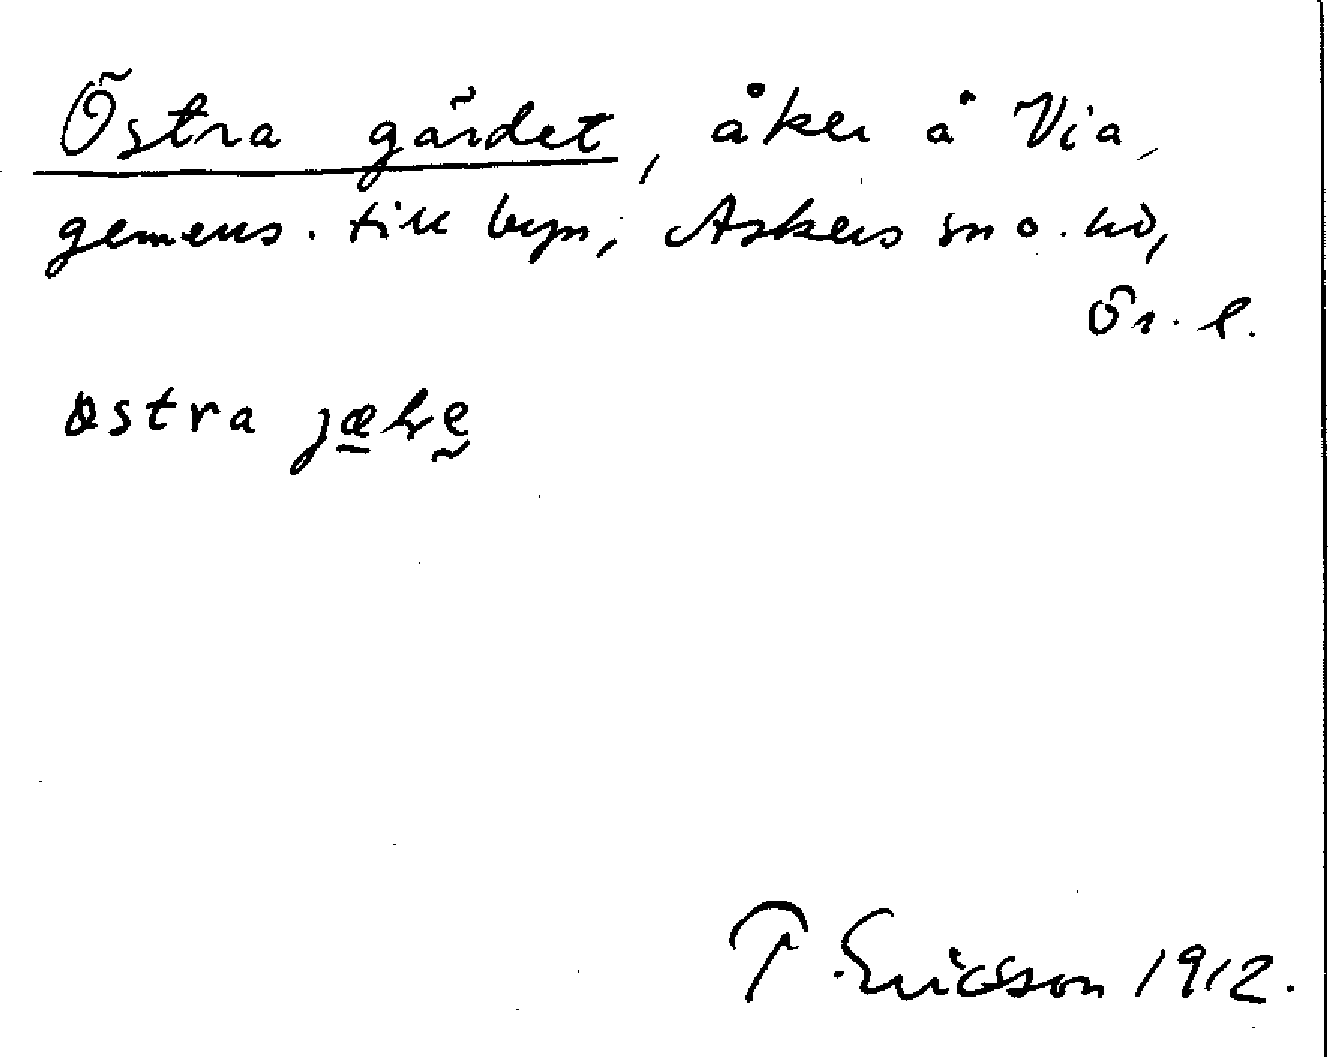 Östra gärdet, åker å Via,
gemens. till byn, Askers sn o. hd,
Ör. l.
östra
T. Ericsson 1912.